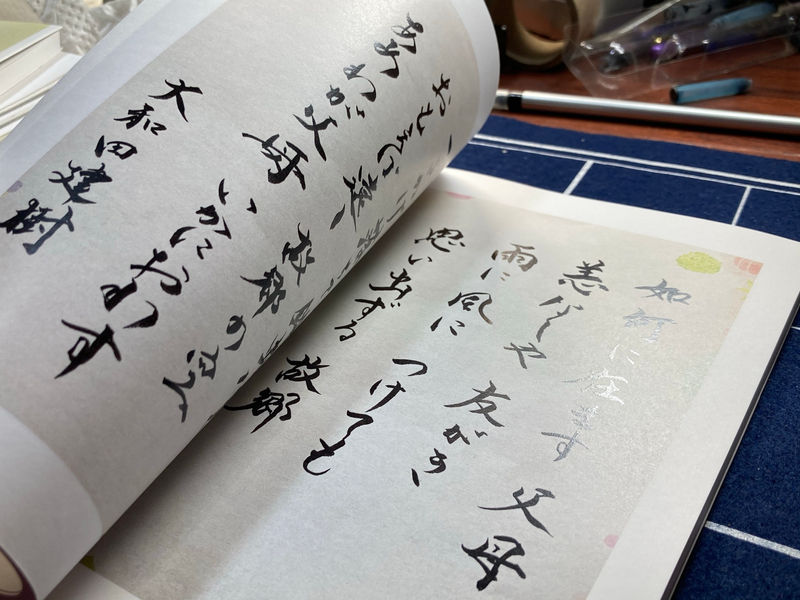 如何に在ます 父母
恙なしや 友がき
雨に風に つけても
思い出ずる 故郷
おもえば遠し 故郷の空
ああわが父母 いかにおわす
大和田建樹